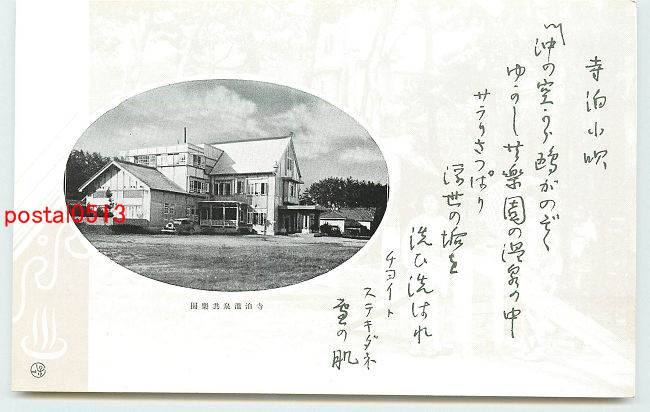 寺泊小唄
〽沖の空から鴎がのぞく
ゆかし共楽園の温泉の中
サラリさつぱり
浮世の垢を
洗ひ洗はれ
チヨイト
ステキダネ
雪の肌
園樂共泉溫泊寺
postal0513